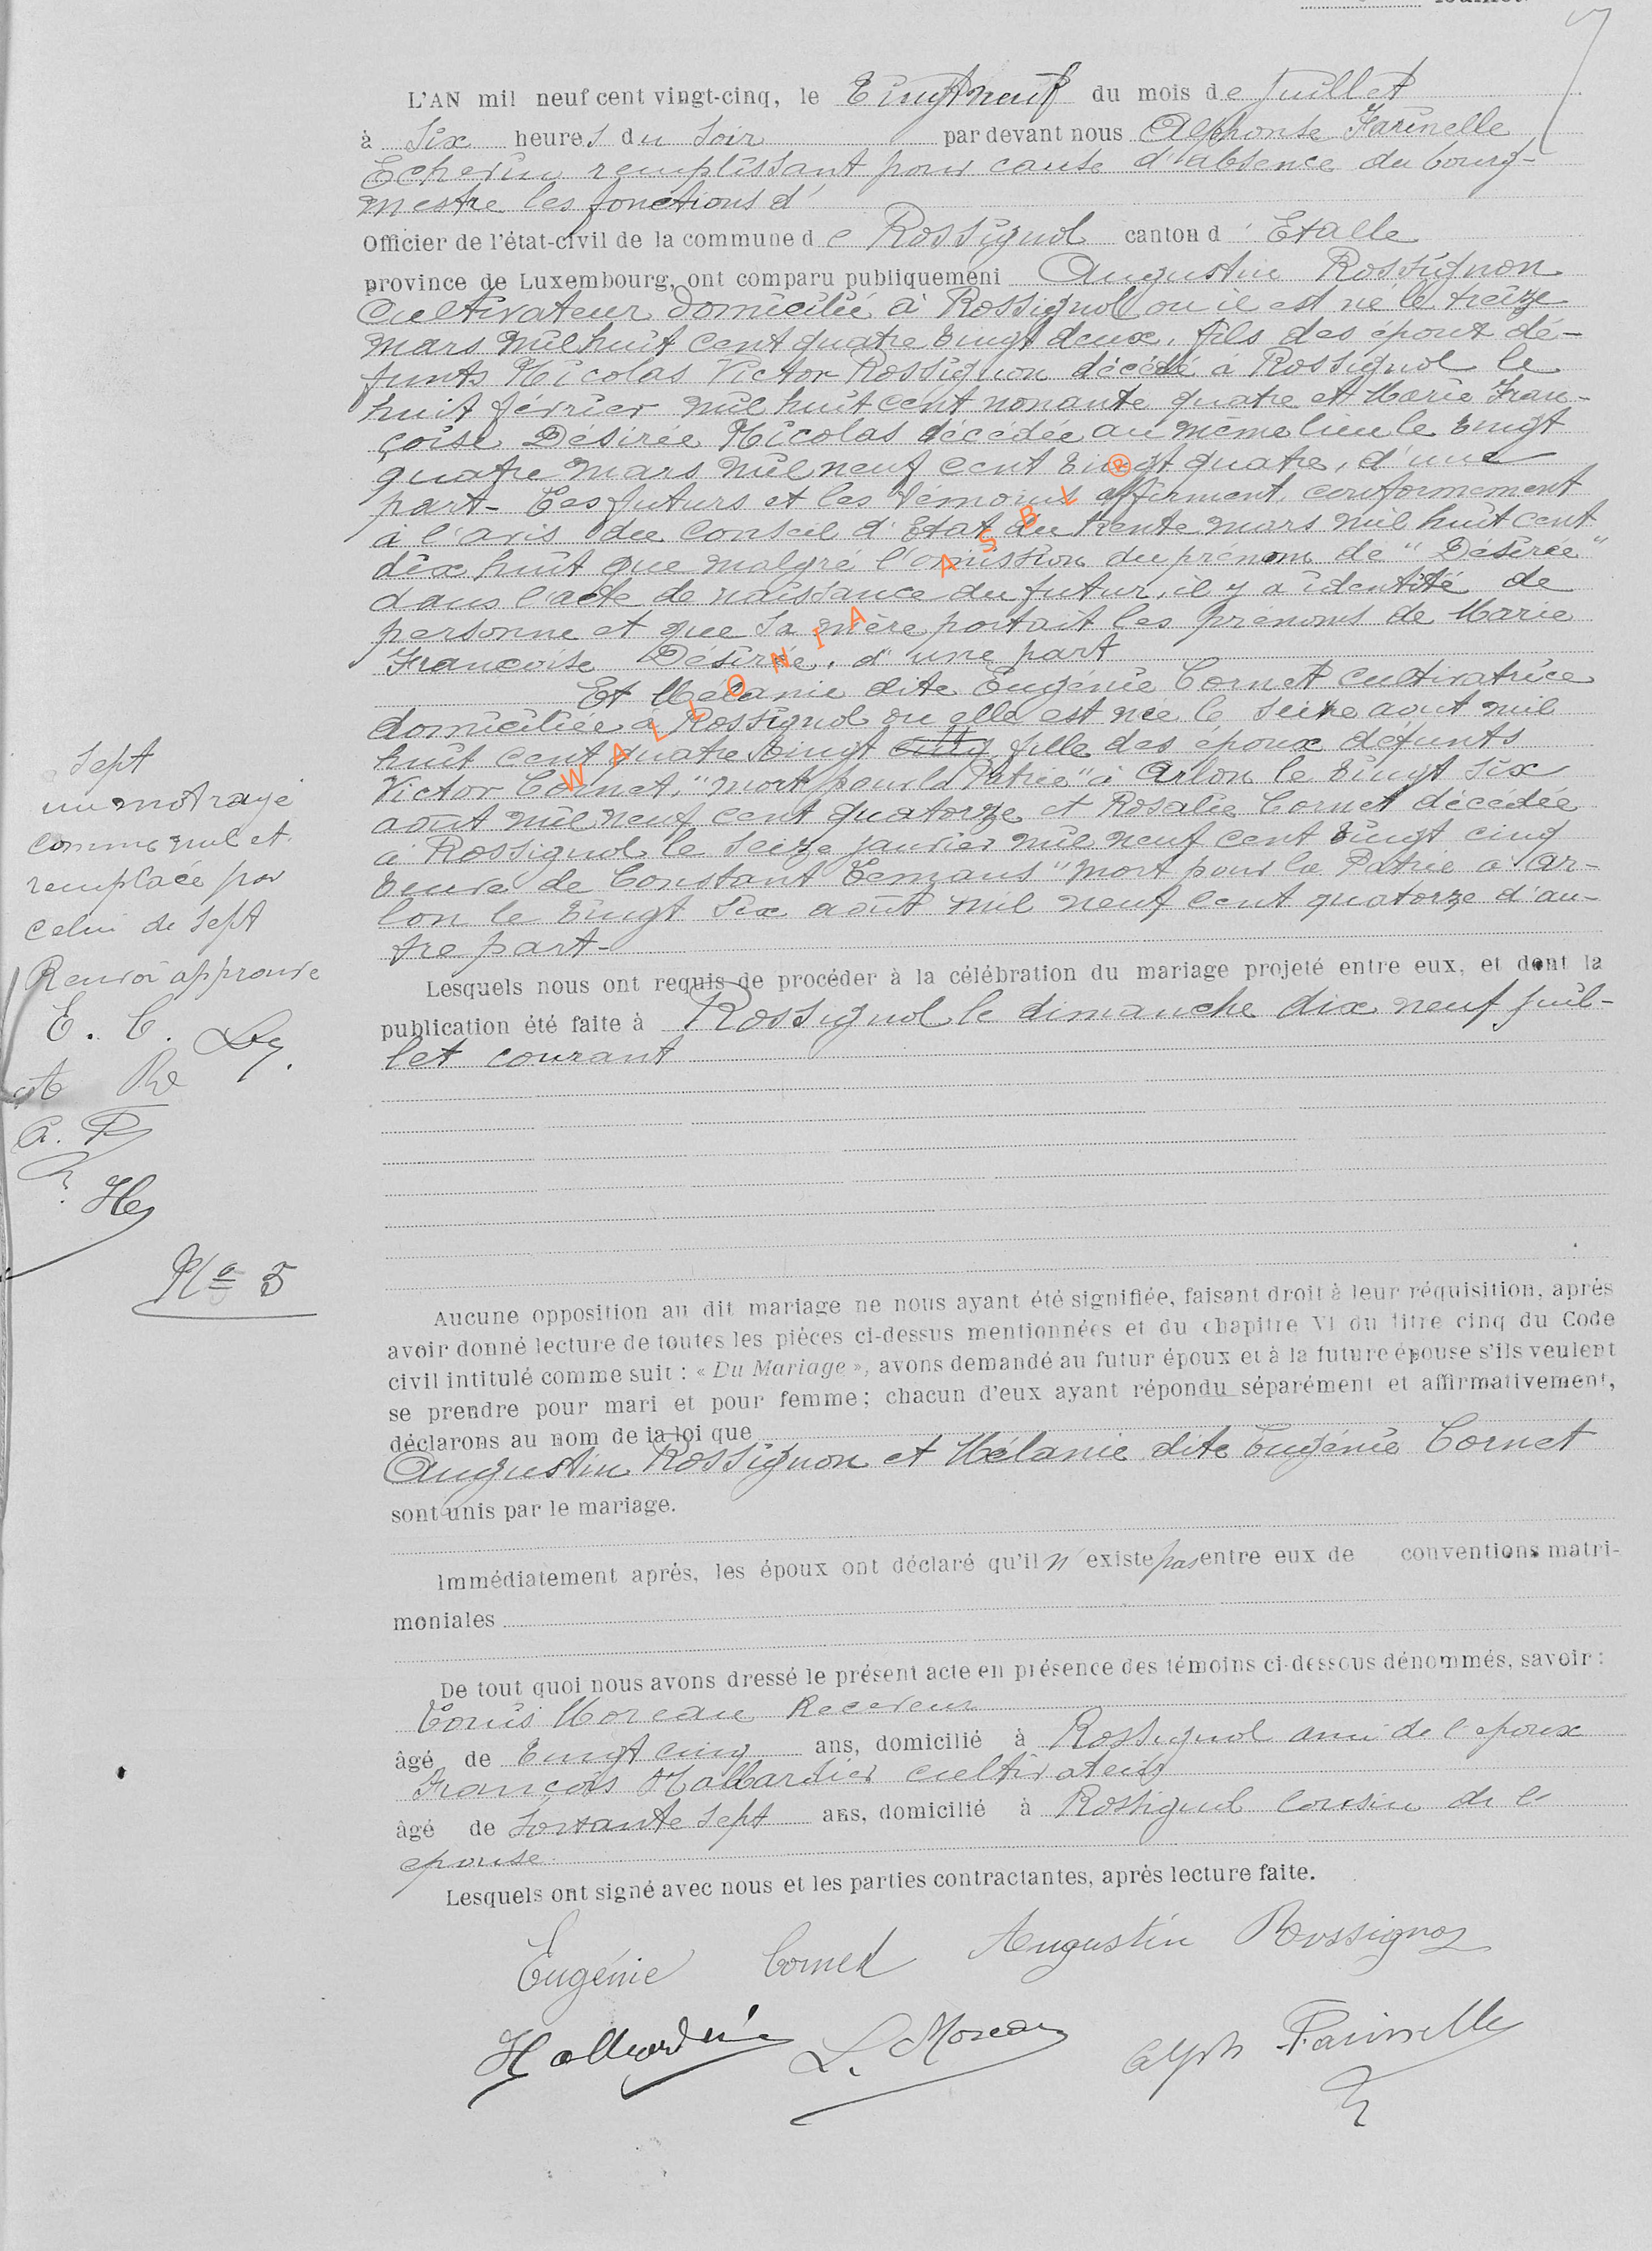 feuillet.
L'AN mil neuf cent vingt-cinq, le Vingt neuf du mois de Juillet
à Six heures du Soir par devant nous Alphonse Farinelle
Echevin remplissant pour cause d'absence du bourg-
mestre les fonctions d'
Officier de l'état-civil de la commune de Rossignol canton d'Etalle
province de Luxembourg, ont comparu publiquement Augustin Rossignon
Cultivateur domicilié à Rossignol ou il est né le treize
mars mil huit cent quatre vingt deux, fils des époux dé-
funts Nicolas Victor Rossignon décédé à Rossignol le
huit février mil huit cent nonante quatre et Marie Fran-
çoise Désirée Nicolas décédée au même lieu le vingt
quatre mars mil neuf cent vingt quatre, d'une
part- Les futurs et les témoins affirment, conformement
à l'avis du Conseil d'Etat du trente mars mil huit cent
dix huit que malgré l'omission du prénom de "Désirée"
dans l'acte de naissance du futur, il y a identité de
personne et que sa mère portait les prénoms de Marie
Françoise Désirée, d'une part
Et Mélanie dite Eugénie Cornet Cultivatrice
domiciliée à Rossignol ou elle est née le seize aout mil
huit cent quatre vingt fille des époux défunts
Victor Cornet, "mort pour la Patrie" à Arlon le vingt six
août mil neuf cent quatorze et Rosalie Cornet décédée
à Rossignol le seize janvier mil neuf cent vingt cinq
veuve de Constant Lemans "mort pour la Patrie à Ar-
lon le vingt six août mil neuf cent quatorze d'au-
tre part-
Sept
un mot rayé
comme nul et
remplacé par
celui de sept
Renvoi approuvé
E. C.
A. F
He
No 5
Lesquels nous ont requis de procéder à la célébration du mariage projeté entre eux, et dont la
publication été faite à Rossignol le dimanche dix neuf juil-
let courant
Aucune opposition au dit mariage ne nous ayant été signifiée, faisant droit à leur réquisition, après
avoir donné lecture de toutes les pièces ci-dessus mentionnées et du chapitre VI du titre cinq du Code
civil intitulé comme suit : « Du Mariage », avons demandé au futur époux et à la future épouse s'ils veulent
se prendre pour mari et pour femme; chacun d'eux ayant répondu séparément et affirmativement,
déclarons au nom de la loi que
Augustin Rossignon et Mélanie dite Eugénie Cornet
sont unis par le mariage.
Immédiatement après, les époux ont déclaré qu'il n'existe pas entre eux de conventions matri-
moniales
De tout quoi nous avons dressé le présent acte en présence des témoins ci-dessous dénommés, savoir :
Louis Moreau Receveur
âgé de Vingt cinq ans, domicilié à Rossignol ami de l'epoux
François Hallardier cultivateur
âgé de soixante sept ans, domicilié à Rossignol cousin de l'
epouse
Lesquels ont signé avec nous et les parties contractantes, après lecture faite.
Eugénie Cornet Augustin Rossignon
L. Moreau Alph Farinelle
WALLONIA ASBL ®